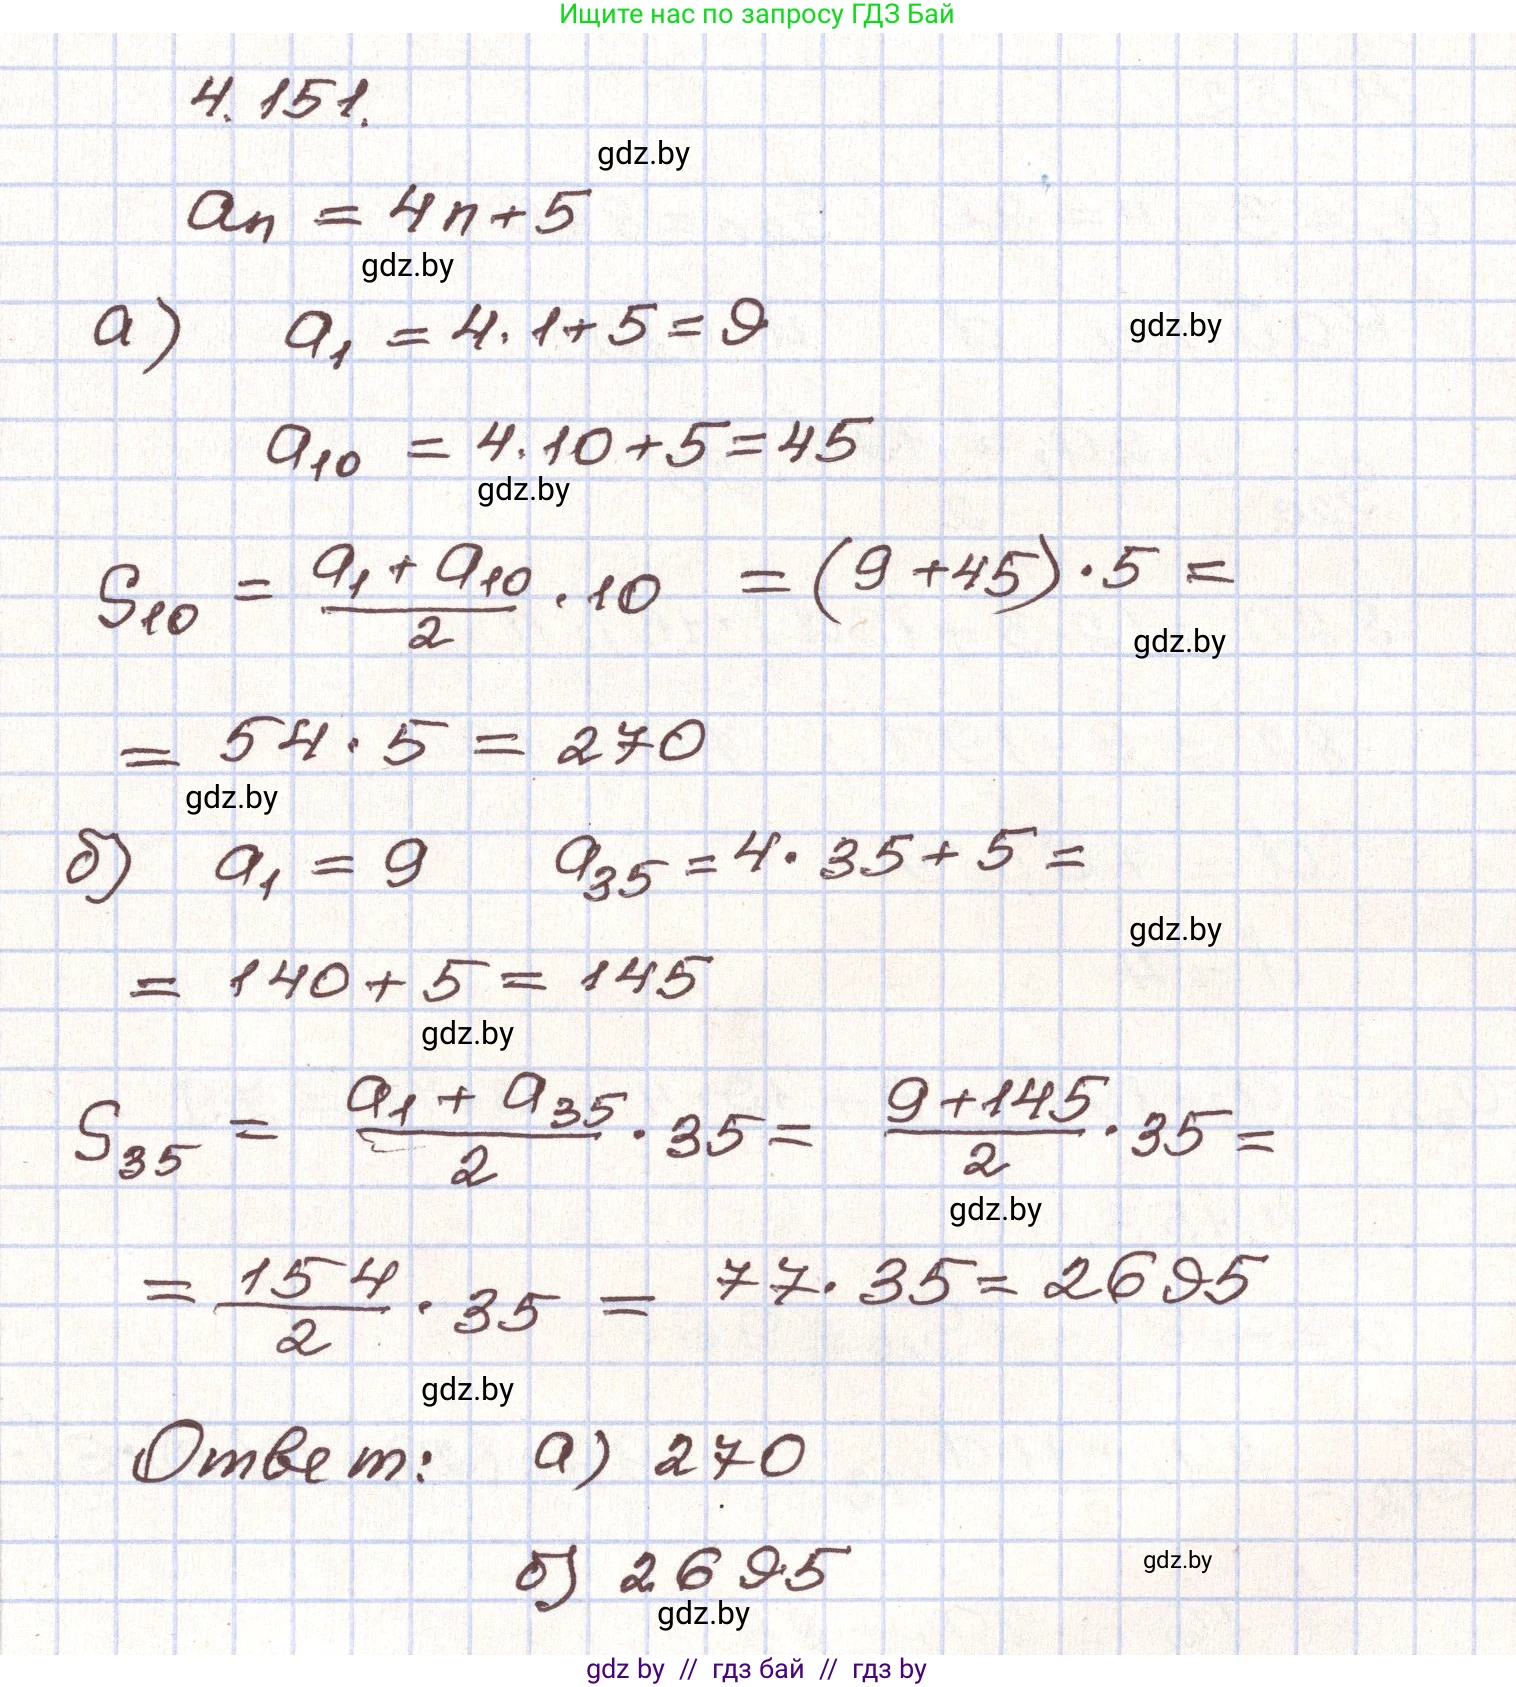 Ищите нас по запросу ГДЗ Бай
4.151.
gdz.by
aₙ = 4n+5
gdz.by
а) a₁ = 4·1+5=9
gdz.by
a₁₀ = 4·10+5=45
gdz.by
S₁₀ = (a₁ + a₁₀)/2 · 10 = (9+45)·5 =
gdz.by
= 54·5 = 270
gdz.by
б) a₁ = 9 a₃₅ = 4·35+5 =
gdz.by
= 140+5 = 145
gdz.by
S₃₅ = (a₁ + a₃₅)/2 · 35 = (9+145)/2 · 35 =
gdz.by
= 154/2 · 35 = 77·35 = 2695
gdz.by
Ответ: а) 270
б) 2695
gdz.by
gdz.by
gdz by // гдз бай // гдз by